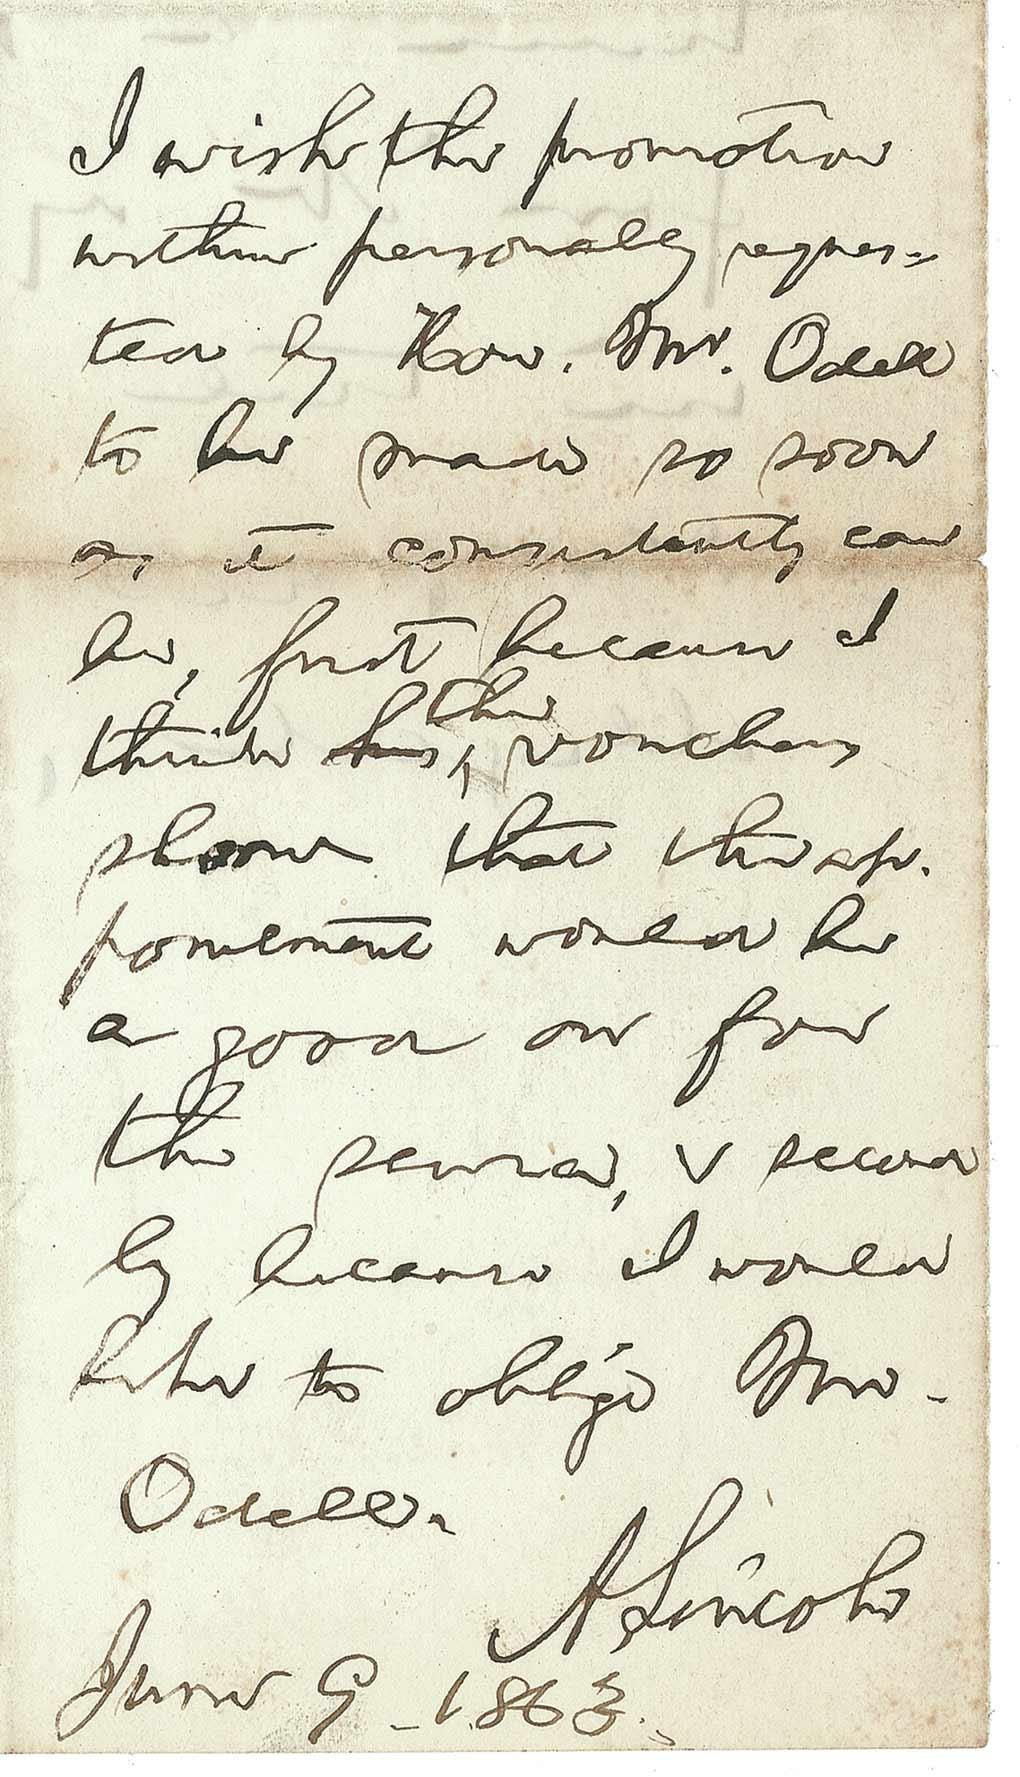 I wish the promotion
within personally reques-
ted by Hon. Mr. Odell
to be made so soon
as it consistently can
be, first because I
the
think his ^ vouchers
show that the ap-
pointment would be
a good one for
the service, & second
ly because I would
like to oblige Mr.
Odell.
A. Lincoln
June 9, 1863.